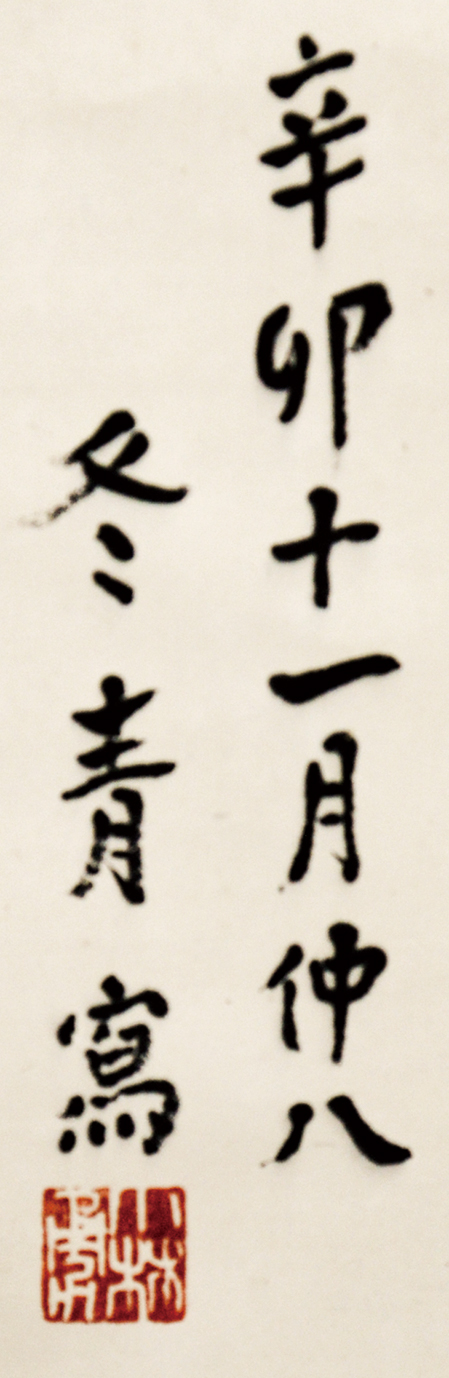 辛卯十一月仲八
冬青寫
小林